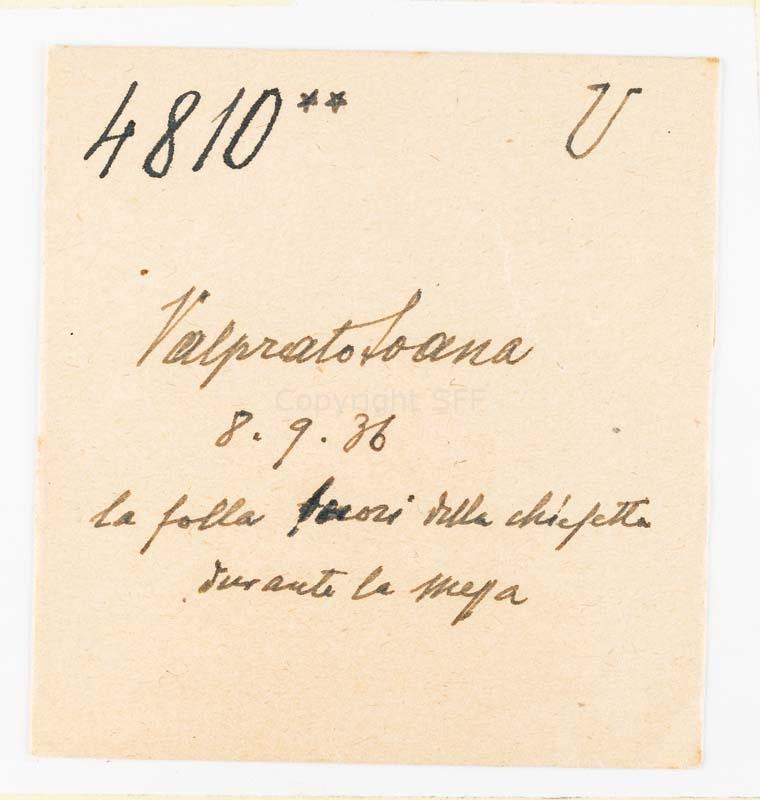 4810** U
Valprato Soana
Copyright SFF
8. 9. 36
la folla fuori della chiesetta
durante la messa